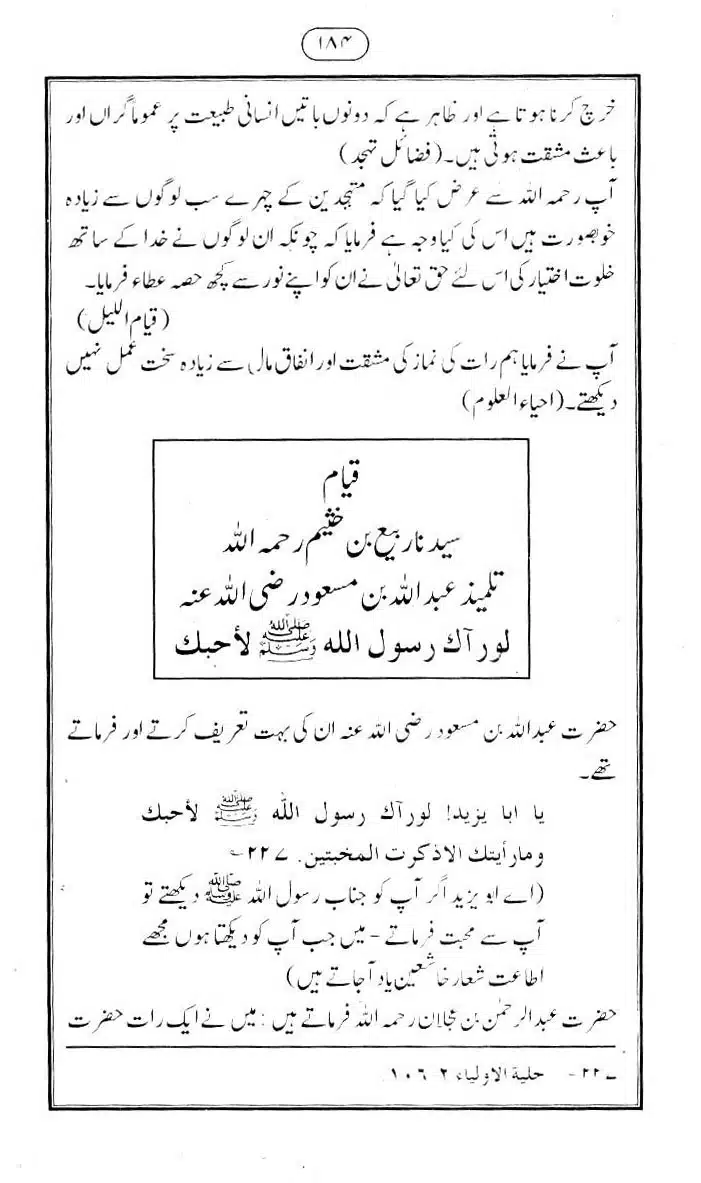 ۱۸۴
خرچ کرنا ہوتا ہے اور ظاہر ہے کہ دونوں باتیں انسانی طبیعت پر عموماً گراں اور
باعث مشقت ہوتی ہیں۔ (فضائل تہجد)
آپ رحمہ اللہ سے عرض کیا گیا کہ متہجدین کے چہرے سب لوگوں سے زیادہ
خوبصورت ہیں اس کی کیا وجہ ہے فرمایا کہ چونکہ ان لوگوں نے خدا کے ساتھ
خلوت اختیار کی اس لئے حق تعالیٰ نے ان کو اپنے نور سے کچھ حصہ عطاء فرمایا۔
(قیام اللیل)
آپ نے فرمایا ہم رات کی نماز کی مشقت اور انفاق مال سے زیادہ سخت عمل نہیں
دیکھتے۔ (احیاء العلوم)
قیام
سیدنا ربیع بن خثیم رحمہ اللہ
تلمیذ عبداللہ بن مسعود رضی اللہ عنہ
لورآك رسول الله ﷺ لأحبك
حضرت عبداللہ بن مسعود رضی اللہ عنہ ان کی بہت تعریف کرتے اور فرماتے
تھے۔
یا ابا یزید! لورآك رسول الله ﷺ لأحبك
ومارأیتك الاذکرت المخبتین. ۲۲۷؎
(اے ابو یزید اگر آپ کو جناب رسول اللہ ﷺ دیکھتے تو
آپ سے محبت فرماتے - میں جب آپ کو دیکھتا ہوں مجھے
اطاعت شعار خاشعین یاد آجاتے ہیں)
حضرت عبدالرحمٰن بن عجلان رحمہ اللہ فرماتے ہیں : میں نے ایک رات حضرت
۲۲۷- حلیة الاولیاء ۲ ۱۰۶